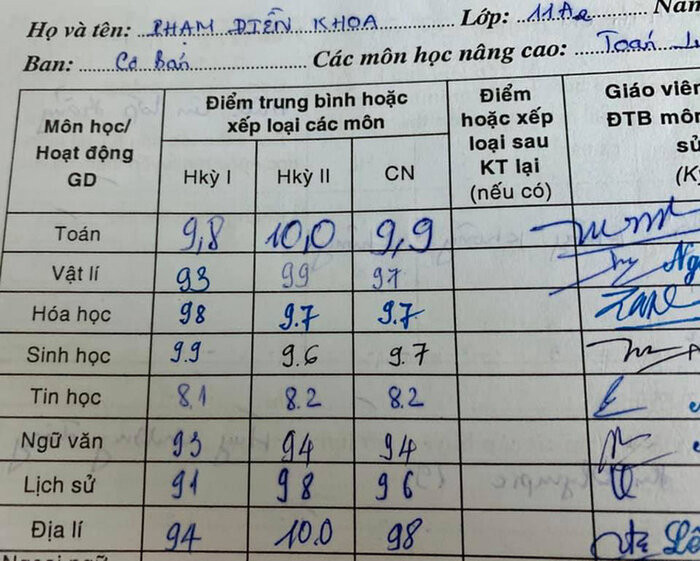 Họ và tên: PHẠM ĐIỀN KHOA Lớp: 11A2 Năm
Ban: Cơ Bản Các môn học nâng cao: Toán
Môn học/ Hoạt động GD
Điểm trung bình hoặc xếp loại các môn
Hkỳ I Hkỳ II CN
Điểm hoặc xếp loại sau KT lại (nếu có)
Giáo viên
ĐTB môn
sử
(K
Toán 9,8 10,0 9,9
Vật lí 93 99 97
Hóa học 98 9.7 9.7
Sinh học 9.9 9.6 9.7
Tin học 8.1 8.2 8.2
Ngữ văn 93 94 94
Lịch sử 91 98 96
Địa lí 94 10.0 98 Lê
Ngoại ngữ